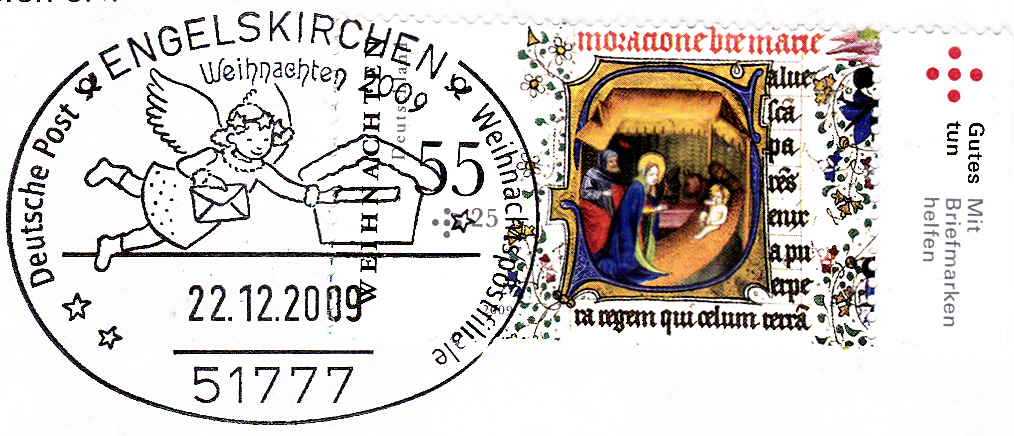 ENGELSKIRCHEN
Weihnachten 2009
Deutsche Post
Weihnachtspostfiliale
22.12.2009
51777
WEIHNACHTEN
Deutschland
55
25
2009
moracione bte marie
alue
sca
pa
res
enix
a pu
erpe
ra regem qui celum terrā
Gutes
tun
Mit
Briefmarken
helfen